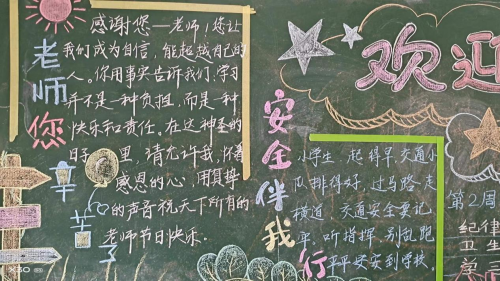 老师您辛苦了
感谢您—老师！您让
我们成为自信，能超越自己的
人。你用事实告诉我们，学习
并不是一种负担，而是一种
快乐和责任。在这神圣的
日子里，请允许我，怀着
感恩的心，用真挚
的声音祝天下所有的
老师节日快乐。
安全伴我行
小学生 起得早 交通小
队排得好，过马路 走
横道 交通安全要记
牢，听指挥，别乱跑
平平安安到学校。
欢迎
第2周
纪律
卫生
学习
X30